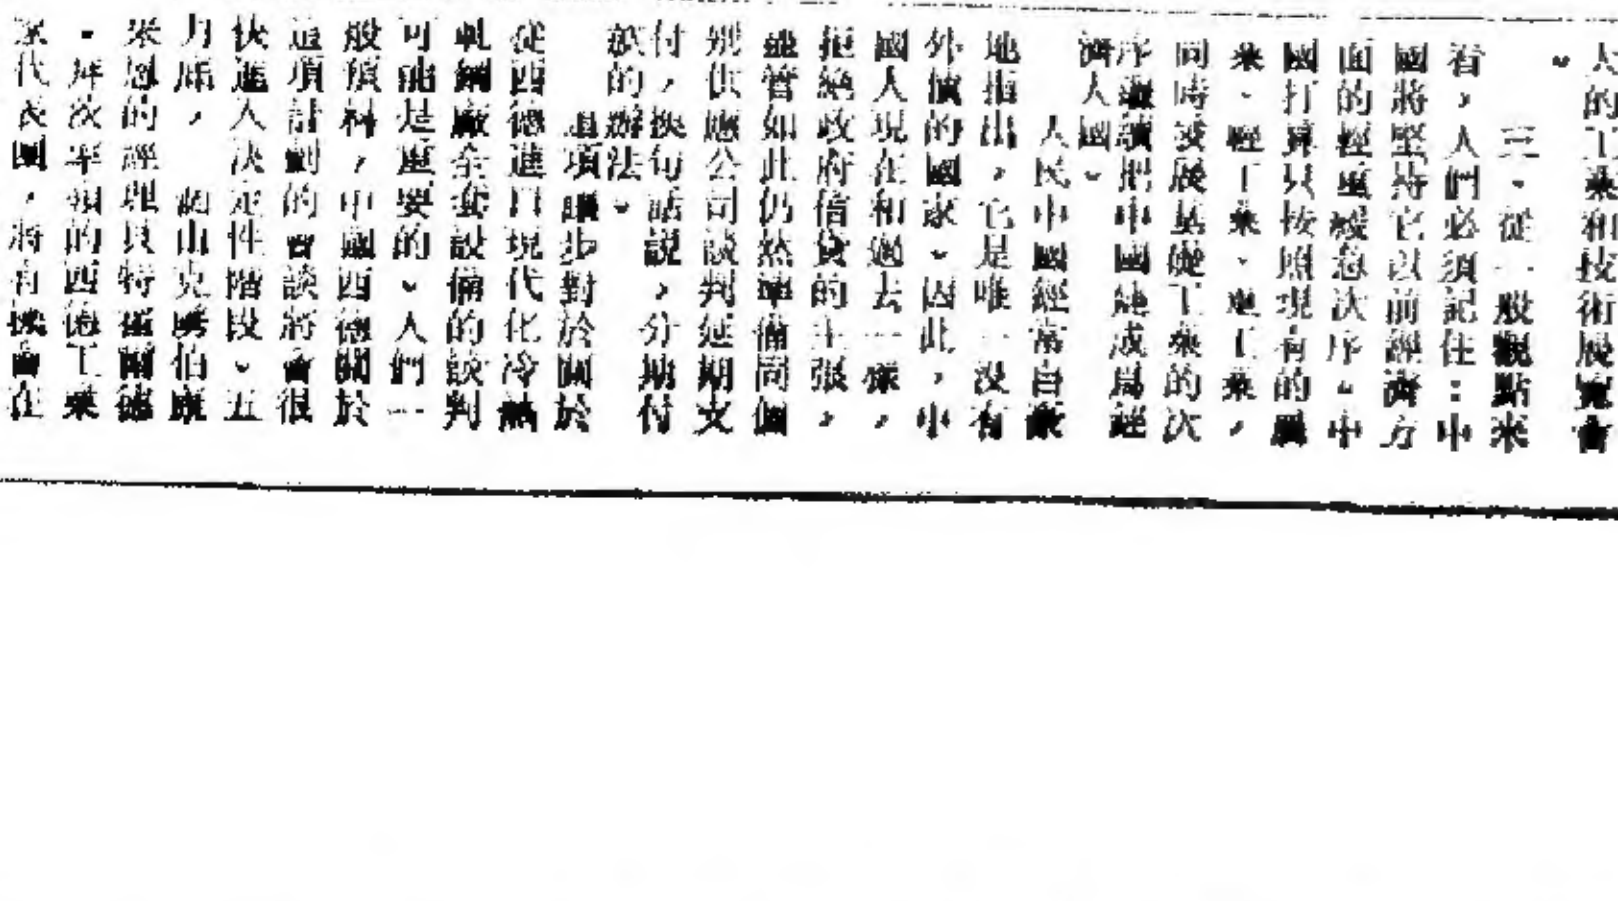 大的工業和技術展覽會
。
三、從一般觀點來
看，人們必須記住：中
國將堅持它以前經濟方
面的輕重緩急次序。中
國打算只按照現有的農
業、輕工業、重工業，
同時發展基礎工業的次
序繼續把中國建成爲經
濟大國。
人民中國經常自豪
地指出，它是唯一沒有
外債的國家。因此，中
國人現在和過去一樣，
拒絕政府信貸的主張，
儘管如此仍然準備同個
別供應公司談判延期支
付，換句話說，分期付
款的辦法。
這項讓步對於關於
從西德進口現代化冷熱
軋鋼廠全套設備的談判
可能是重要的。人們一
般預料，中國西德關於
這項計劃的會談將會很
快進入決定性階段。五
力
米恩的經理貝特霍爾德
率領的西德工業
家代表團，將有機會在